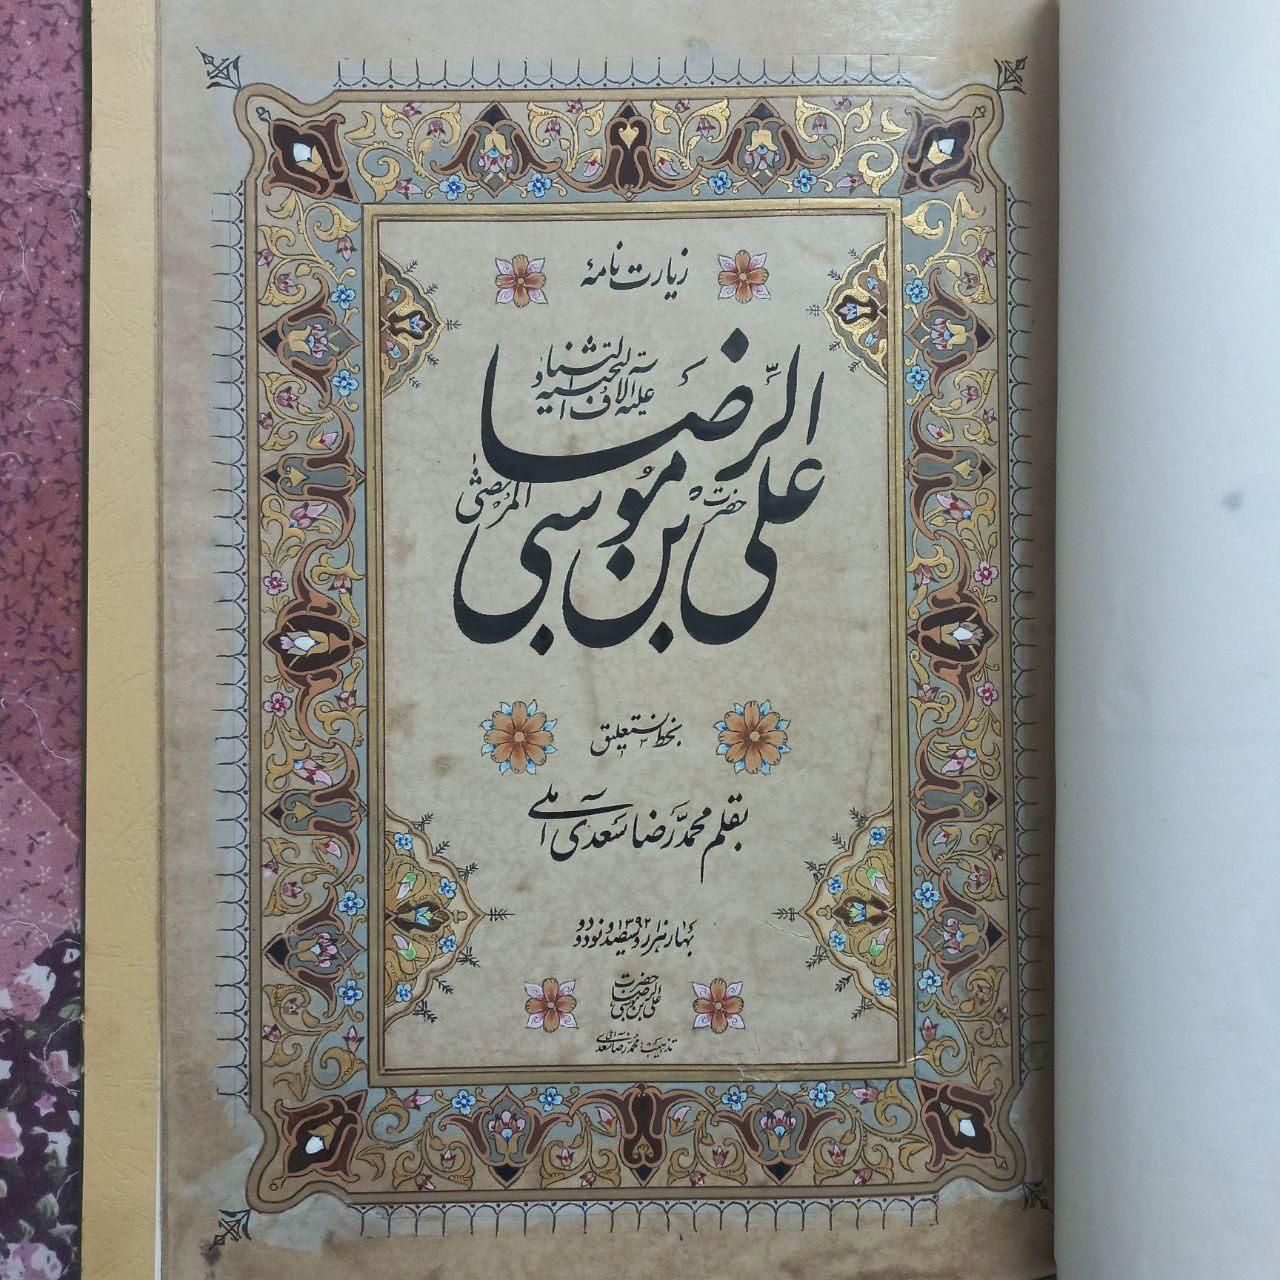 زیارت نامهٔ
حضرت علی بن موسی الرضا المرتضیٰ
علیه آلاف التحیة والثناء
بخط نستعلیق
بقلم محمدرضا سعدی آملی
بهار ۱۳۹۲ هزار و سیصد و نود و دو
حضرت علی بن موسی الرضا
تذهیب: محمدرضا سعدی آملی